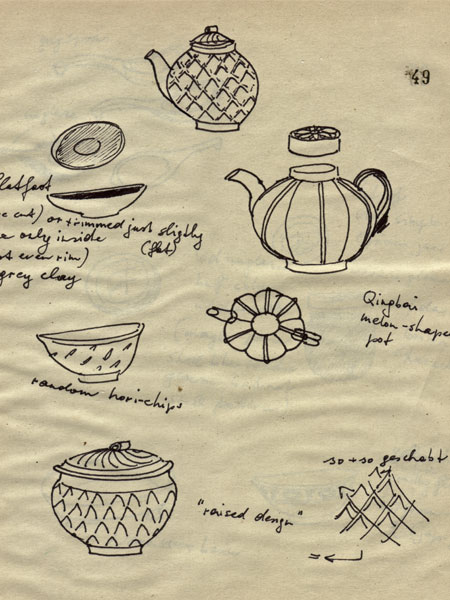 49
flatfoot
cut) or trimmed just sligthly
only inside (flat)
even rim)
grey clay
Qingbai
melon-shape
pot
random hori-chips
so + so geschabt
"raised design"
=